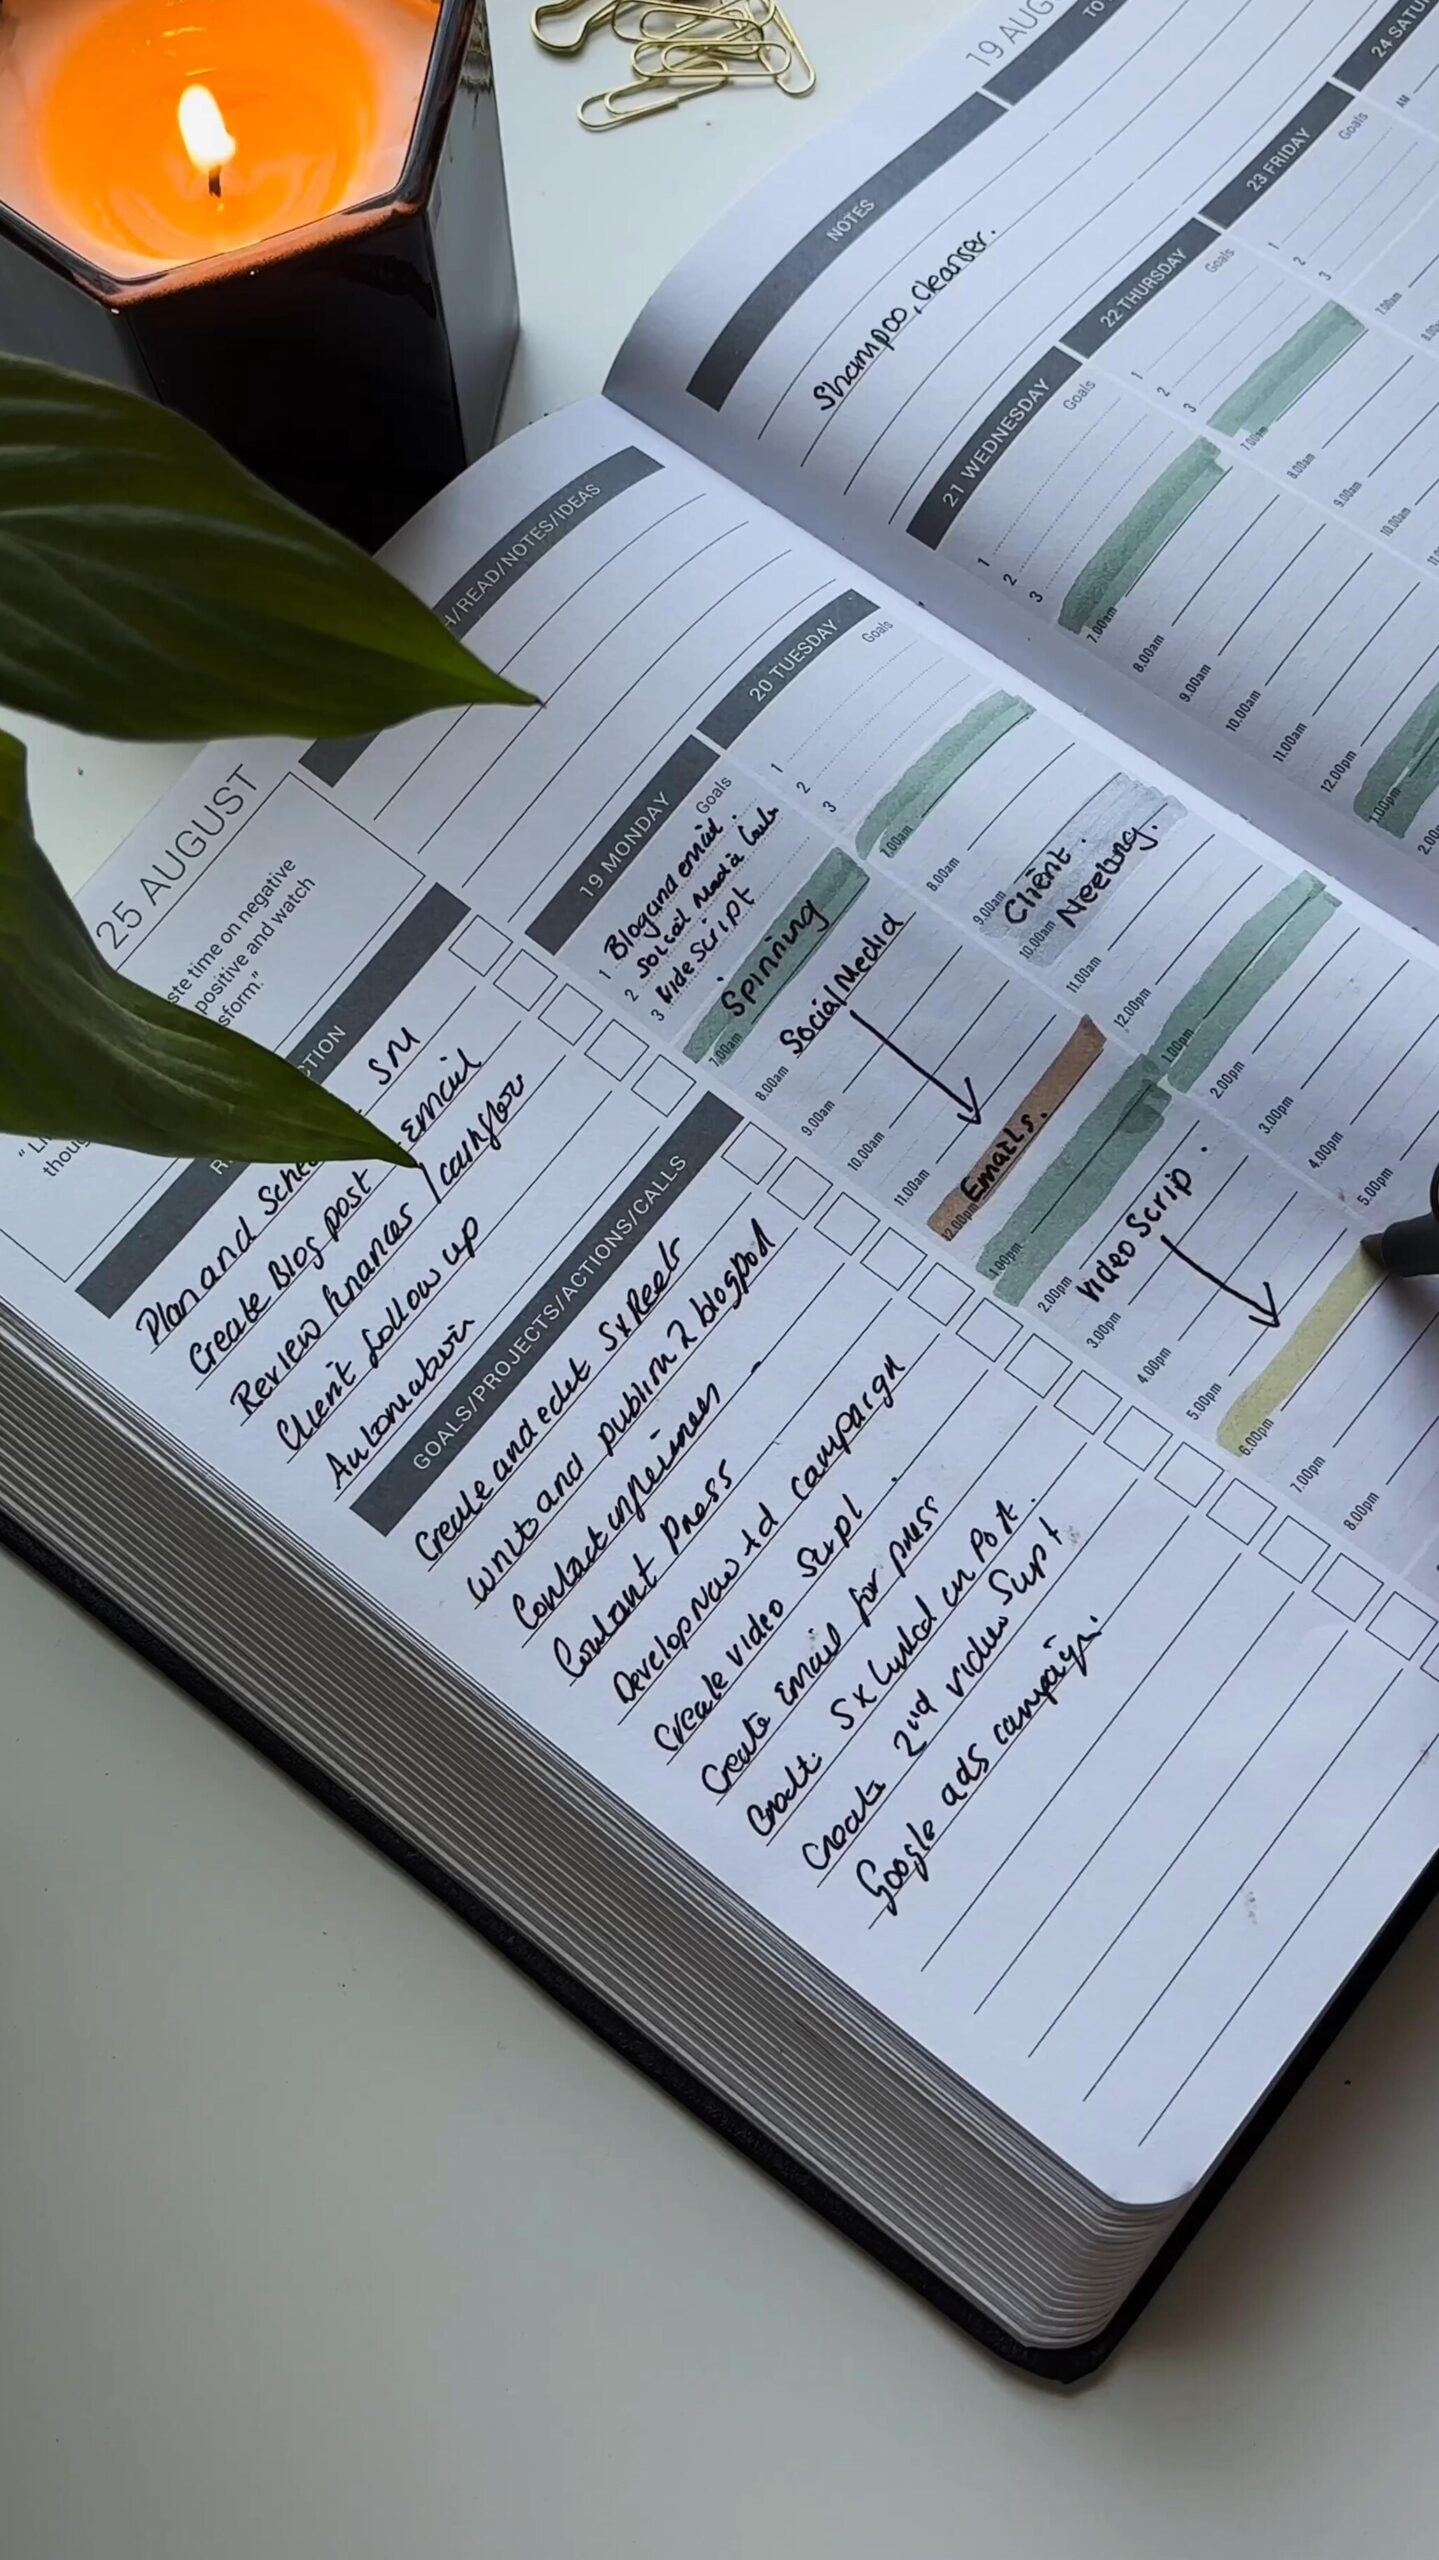 25 AUGUST
ste time on negative
positive and watch
sform."
thou
H/READ/NOTES/IDEAS
CTION
Plan and Sche SM
Create Blog post Email
Review finances
Client follow up
Automation
GOALS/PROJECTS/ACTIONS/CALLS
Create and edit 5x Reels
Write and publish 2 blogpost
Contact
Contant Press
Develop New ad campaign
Create video Script.
Create Email for press
5x Linked in Post.
Create 2nd video Script
Google ads campaign.
19 MONDAY
Goals
1 Blog and email.
2 Social Media
3 Vide Script
7.00am Spinning
8.00am Social Media
9.00am
10.00am
11.00am
12.00pm Emails.
1.00pm
2.00pm Video Scrip.
3.00pm
4.00pm
5.00pm
6.00pm
7.00pm
8.00pm
20 TUESDAY
Goals
1
2
3
7.00am
8.00am
9.00am Client.
10.00am Meeting.
11.00am
12.00pm
1.00pm
2.00pm
3.00pm
4.00pm
5.00pm
19 AUG
NOTES
TO
Shampoo, Cleanser.
21 WEDNESDAY
Goals
1
2
3
7.00am
8.00am
9.00am
10.00am
11.00am
12.00pm
1.00pm
2.00
22 THURSDAY
Goals
1
2
3
7.00am
8.00am
9.00am
10.00am
11.0
23 FRIDAY
Goals
1
2
3
7.00am
8.00
24 SATU
AM